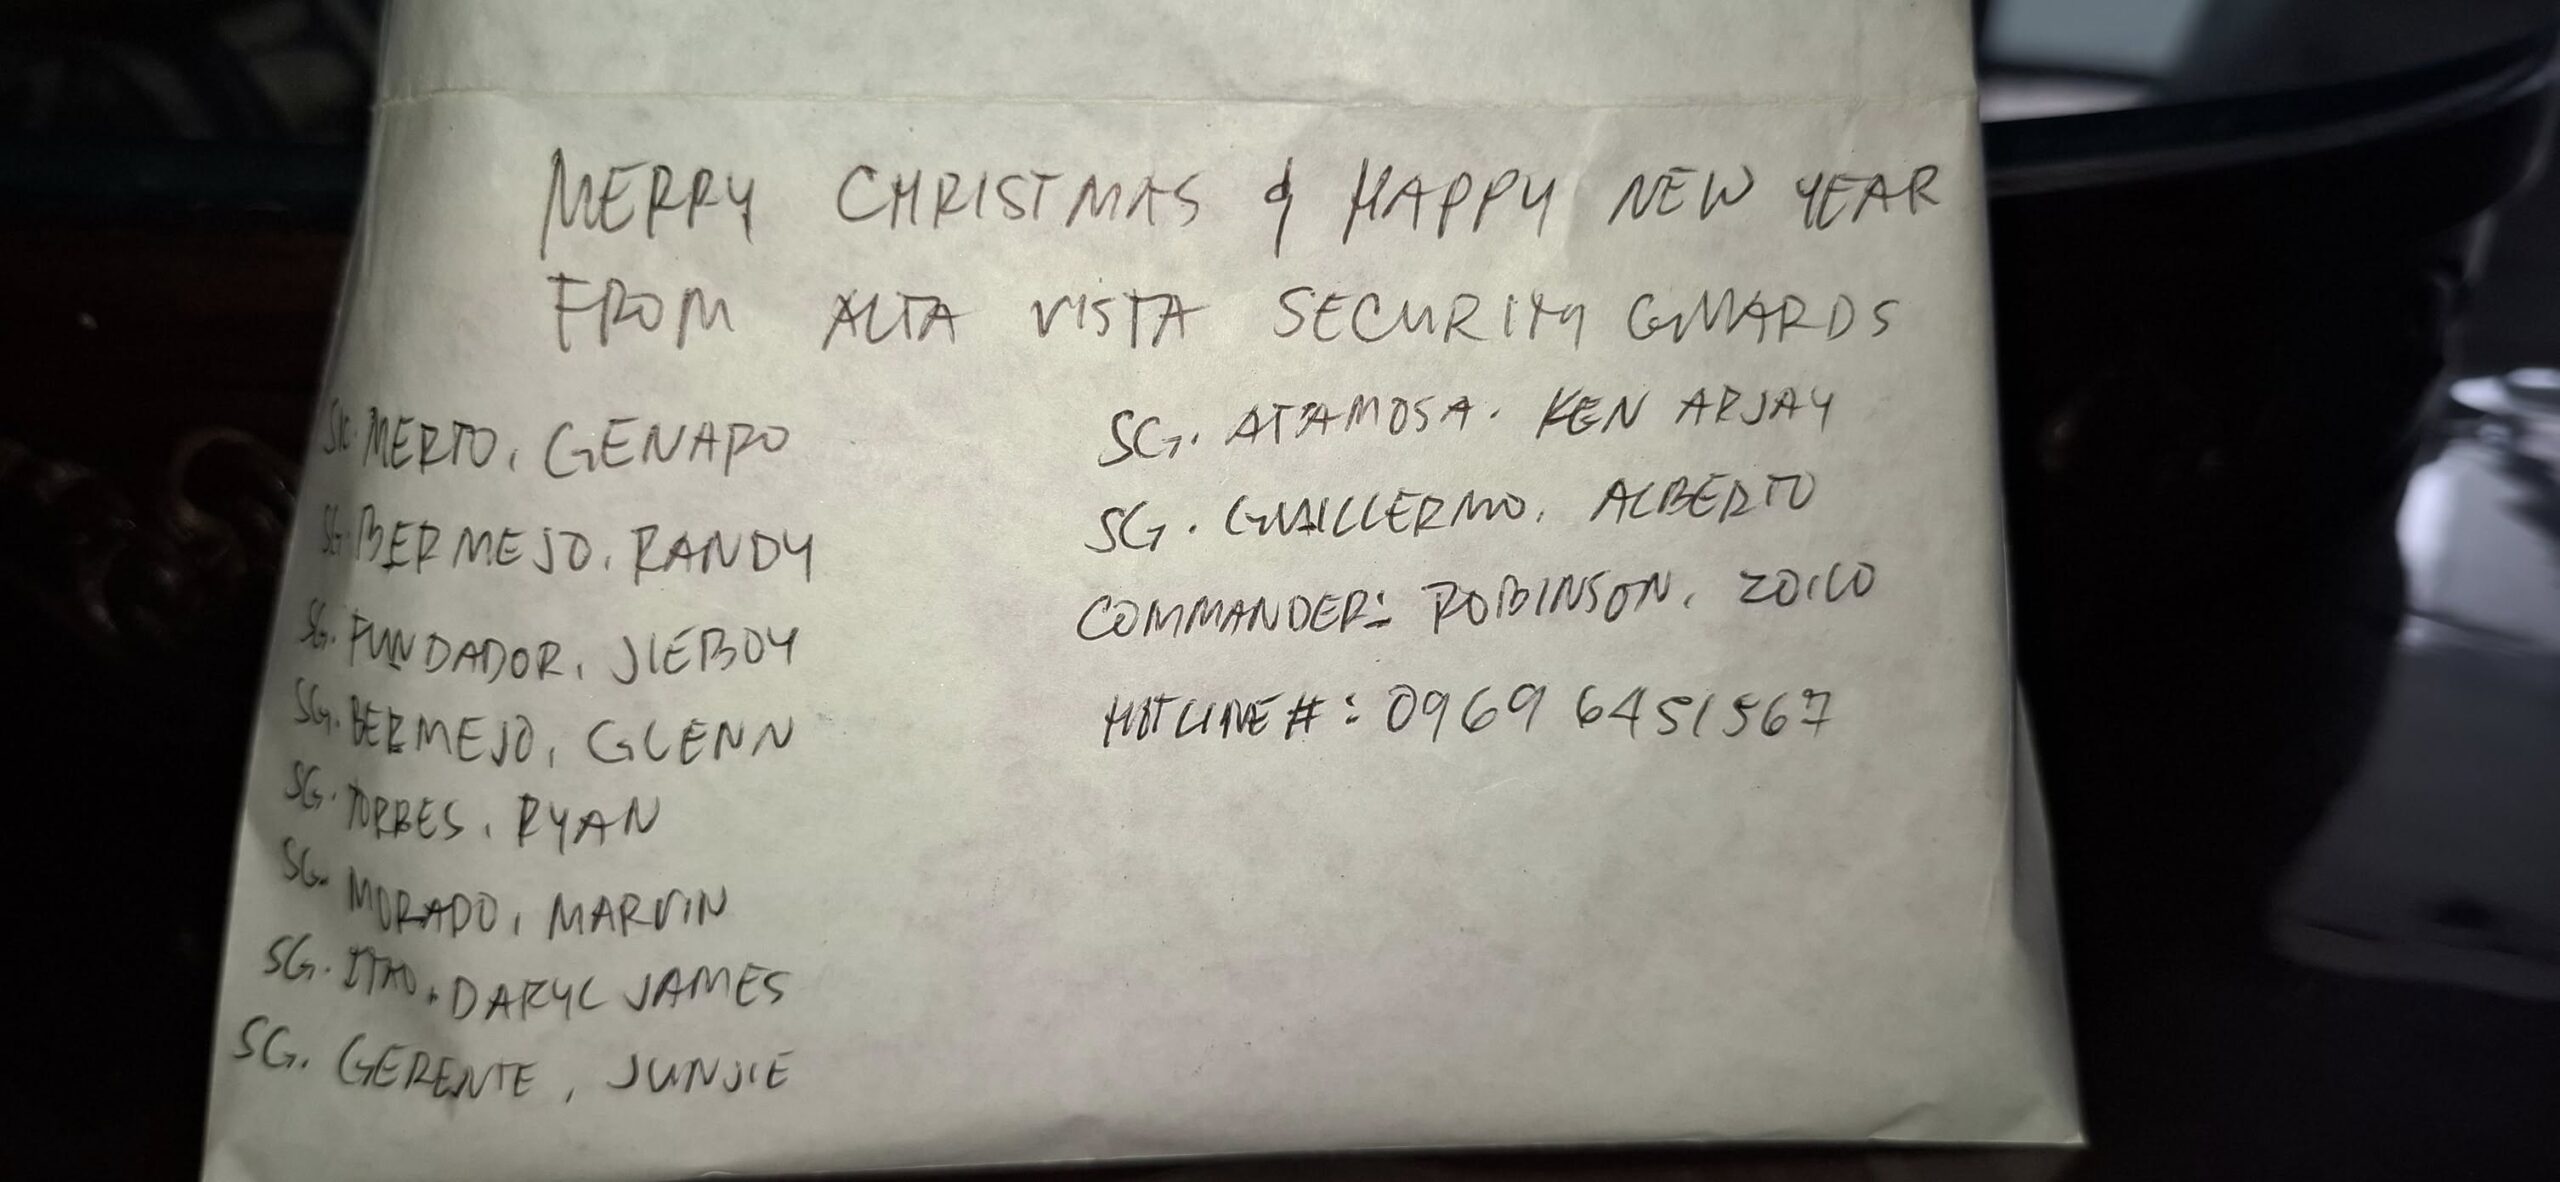 MERRY CHRISTMAS & HAPPY NEW YEAR
FROM ALTA VISTA SECURITY GUARDS
SG. MERTO, GENARO
SG. BERMEJO, RANDY
SG. FUNDADOR, JIEBOY
SG. BERMEJO, GLENN
SG. TORRES, RYAN
SG. MORADO, MARVIN
SG. ITAO, DARYL JAMES
SG. GERENTE, JUNJIE
SG. ATAMOSA. KEN ARJAY
SG. GUILLERMO, ALBERTO
COMMANDER: ROBINSON, ZOILO
HOTLINE #: 0969 6451567